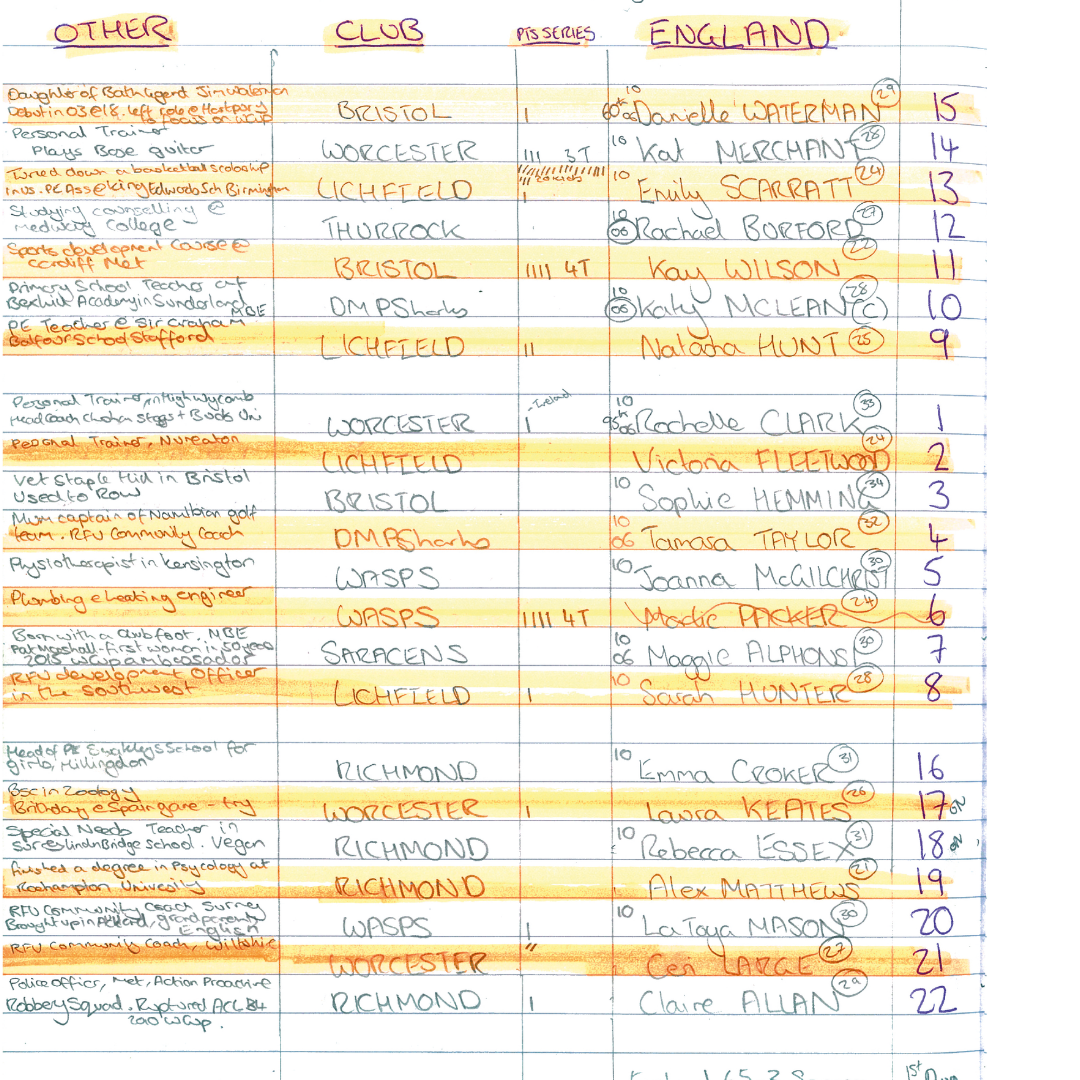 OTHER CLUB PTS SERIES ENGLAND
Daughter of Bath legend Jim Waterman
Debut in 03 @ 18. left role @ Hartpury
to focus on WCup
BRISTOL I 10 60th 06 Danielle WATERMAN 29 15
Personal Trainer
Plays Base guitar
WORCESTER III 3T 10 Kat MERCHANT 28 14
Turned down a basketball scolaship
in US. PE Ass @ King Edwards Sch Birmingham
LICHFIELD I 10 Emily SCARRATT 24 13
Studying counselling @
Medway College
THURROCK 10 06 Rachael BURFORD 27 12
Sports development Course @
Cardiff Met
BRISTOL IIII 4T Kay WILSON 22 11
Primary School Teacher at
Bexhill Academy in Sunderland
MBE
DMPSharks 10 06 Katy MCLEAN 28 (C) 10
PE Teacher @ Sir Graham
Balfour School Stafford
LICHFIELD II Natasha HUNT 25 9
Personal Trainer, in High Wycomb
Head Coach Chesham Stags + Bucks Uni
WORCESTER I - Ireland 10 95th 06 Rochelle CLARK 33 1
Personal Trainer, Nuneaton
LICHFIELD Victoria FLEETWOOD 24 2
Vet Staple Hid in Bristol
Used to Row
BRISTOL 10 Sophie HEMMING 34 3
Mum captain of Namibian golf
team. RFU Community Coach
DMPSharks 10 06 Tamara TAYLOR 32 4
Physiotherapist in Kensington
WASPS 10 Joanna McGILCHRIST 30 5
Plumbing & heating engineer
WASPS IIII 4T Marlie PACKER 24 6
Born with a club foot. MBE
Pat Marshall - first women in 50 years
2015 WCup ambassador
SARACENS 10 06 Maggie ALPHONSI 30 7
RFU development Officer
in the Southwest
LICHFIELD I 10 Sarah HUNTER 28 8
Head of PE School for
girls, Hillingdon
RICHMOND 10 Emma CROKER 31 16
Bsc in Zoology
Birthday @ Spain game - try
WORCESTER I Laura KEATES 26 17
Special Needs Teacher in
Surrey Linden Bridge School. Vegan
RICHMOND 10 Rebecca ESSEX 31 18
finished a degree in Psycology at
Roehampton Univesity
RICHMOND Alex MATTHEWS 21 19
RFU Community Coach Surrey
Brought up in grandparents
English
WASPS I 10 LaToya MASON 30 20
RFU Community Coach, Wiltshire
WORCESTER II Ceri LARGE 27 21
Police officer, Met, Action Proactive
Robbey Squad. Ruptured ACL B4
2010 WCup.
RICHMOND I Claire ALLAN 29 22
1st